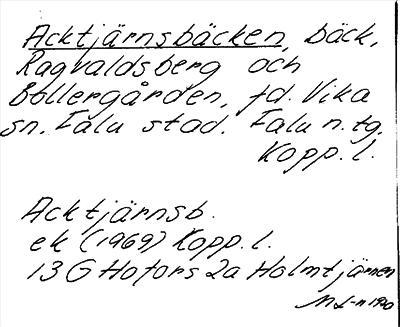 Acktjärnsbäcken, bäck,
Ragvaldsberg och
Bollergården, fd. Vika
sn. Falu stad. Falu n. tg.
Kopp. l.
Acktjärnsb.
ek (1969) Kopp. l.
13 G Hofors 2a Holmtjärnen